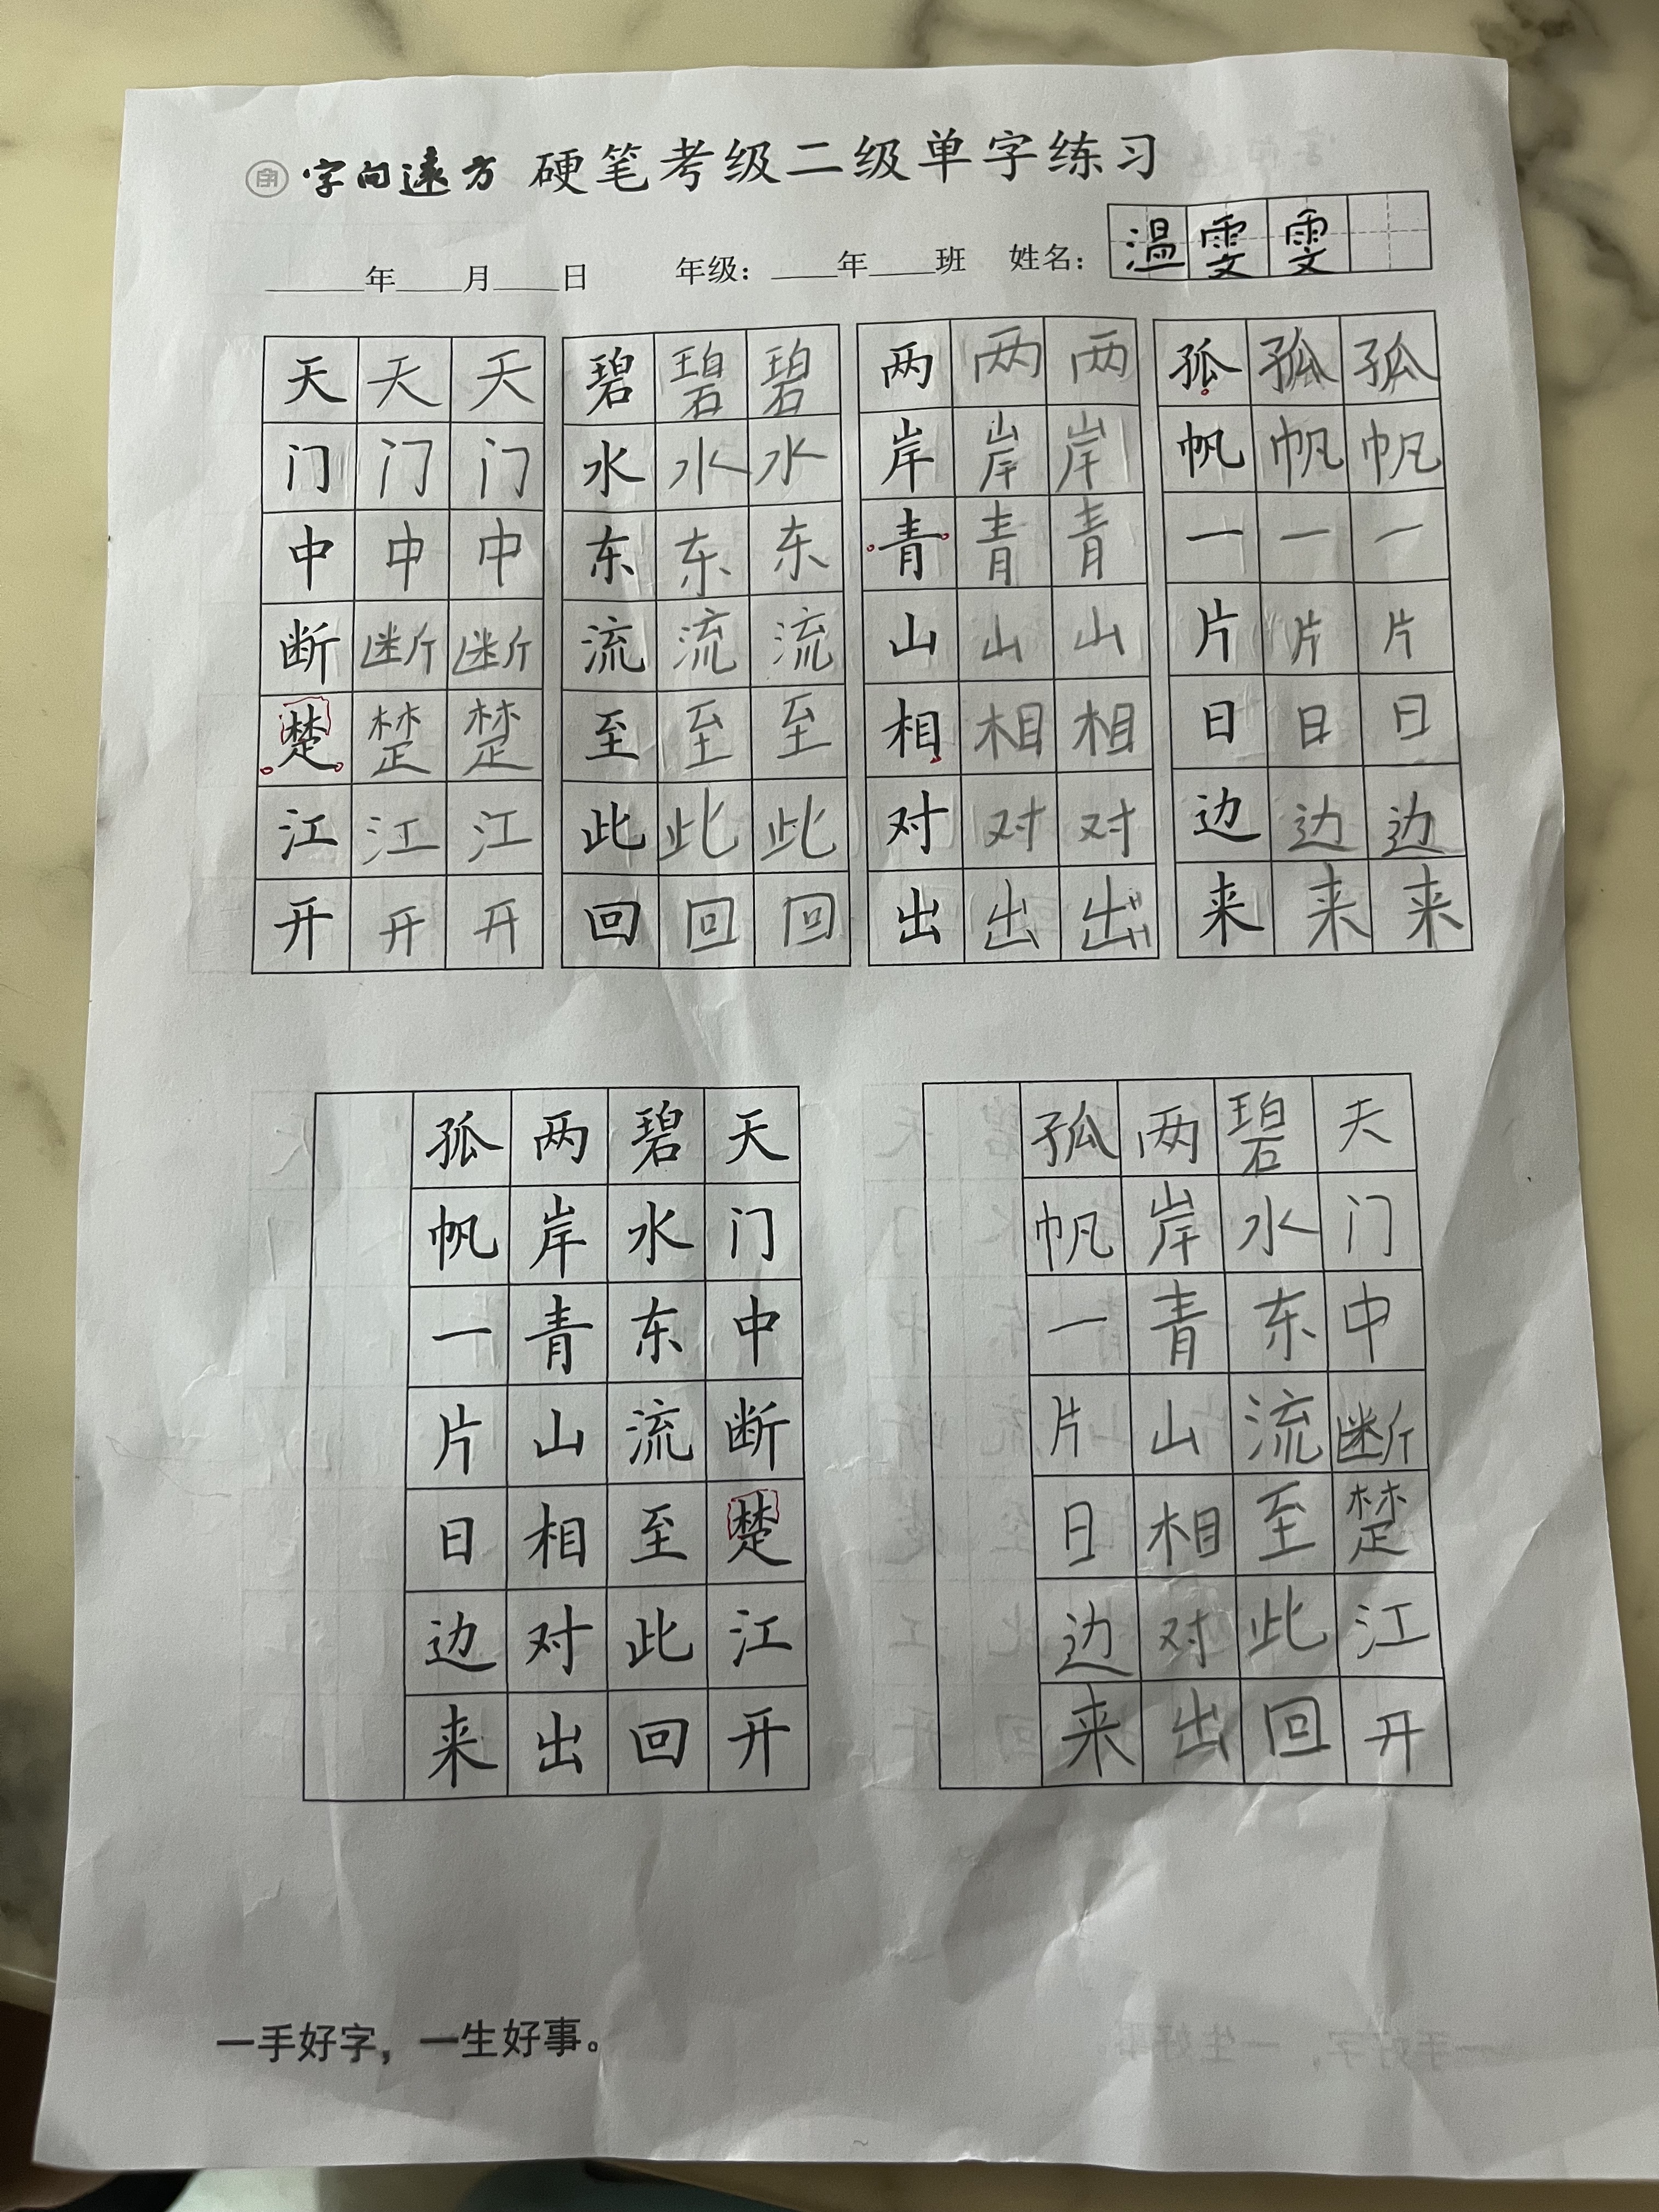 字向远方 硬笔考级二级单字练习
年 月 日 年级： 年 班 姓名： 温雯雯
天天天 碧碧碧 两两两 孤孤孤
门门门 水水水 岸岸岸 帆帆帆
中中中 东东东 青青青 一一一
断断断 流流流 山山山 片片片
楚楚楚 至至至 相相相 日日日
江江江 此此此 对对对 边边边
开开开 回回回 出出出 来来来
天门中断楚江开
碧水东流至此回
两岸青山相对出
孤帆一片日边来
天门中断楚江开
碧水东流至此回
两岸青山相对出
孤帆一片日边来
一手好字，一生好事。